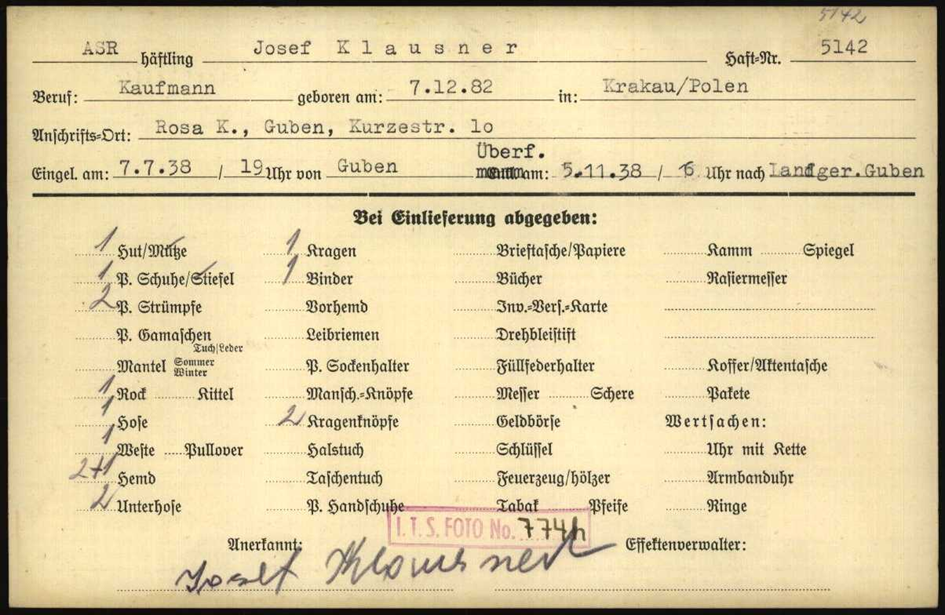 5142
ASR häftling Josef Klausner Haft=Nr. 5142
Beruf: Kaufmann geboren am: 7.12.82 in: Krakau/Polen
Anschrifts=Ort: Rosa K., Guben, Kurzestr. 1o
Überf.
Eingel. am: 7.7.38 / 19 Uhr von Guben am: 5.11.38 / 6 Uhr nach Landger.Guben
Bei Einlieferung abgegeben:
1 Hut/Mütze 1 Kragen Brieftasche/Papiere Kamm Spiegel
1 P. Schuhe/Stiefel 1 Binder Bücher Rasiermesser
2 P. Strümpfe Vorhemd Inv.=Vers.=Karte
P. Gamaschen Tuch/Leder Leibriemen Drehbleistift
Mantel Sommer Winter P. Sockenhalter Füllfederhalter Koffer/Aktentasche
1 Rock Kittel Mansch.=Knöpfe Messer Schere Pakete
1 Hose 2 Kragenknöpfe Geldbörse Wertsachen:
1 Weste Pullover Halstuch Schlüssel Uhr mit Kette
2+1 Hemd Taschentuch Feuerzeug/hölzer Armbanduhr
2 Unterhose P. Handschuhe Tabak Pfeife Ringe
I.T.S. FOTO No. 774
Anerkannt: Effektenverwalter:
Josef Klausner